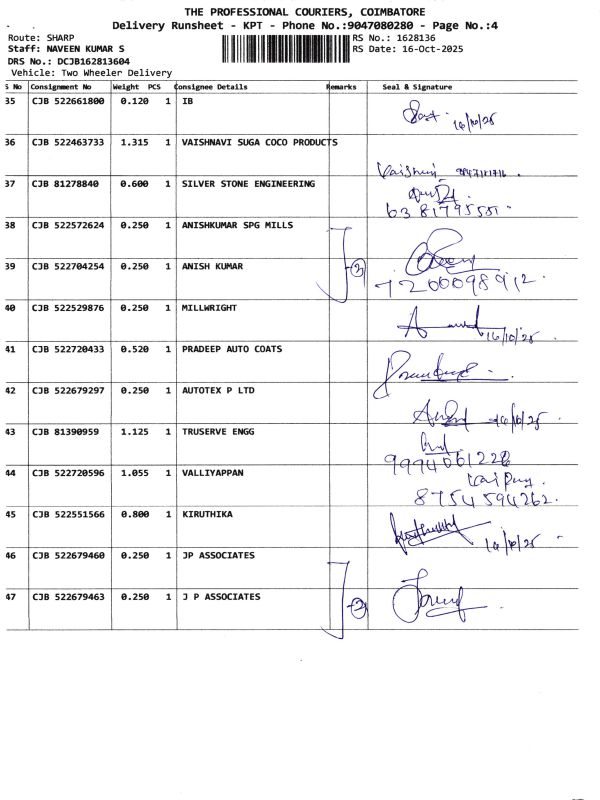 THE PROFESSIONAL COURIERS, COIMBATORE
Delivery Runsheet - KPT - Phone No.:9047080280 - Page No.:4
Route: SHARP RS No.: 1628136
Staff: NAVEEN KUMAR S RS Date: 16-Oct-2025
DRS No.: DCJB162813604
Vehicle: Two Wheeler Delivery
S No Consignment No Weight PCS Consignee Details Remarks Seal & Signature
35 CJB 522661800 0.120 1 IB
16/10/25
36 CJB 522463733 1.315 1 VAISHNAVI SUGA COCO PRODUCTS
37 CJB 81278840 0.600 1 SILVER STONE ENGINEERING
6381795551.
38 CJB 522572624 0.250 1 ANISHKUMAR SPG MILLS
39 CJB 522704254 0.250 1 ANISH KUMAR
2
7200098912.
40 CJB 522529876 0.250 1 MILLWRIGHT
16/10/25
41 CJB 522720433 0.520 1 PRADEEP AUTO COATS
42 CJB 522679297 0.250 1 AUTOTEX P LTD
16/10/25
43 CJB 81390959 1.125 1 TRUSERVE ENGG
9994061228
44 CJB 522720596 1.055 1 VALLIYAPPAN
8754594262.
45 CJB 522551566 0.800 1 KIRUTHIKA
16/10/25
46 CJB 522679460 0.250 1 JP ASSOCIATES
47 CJB 522679463 0.250 1 J P ASSOCIATES
2